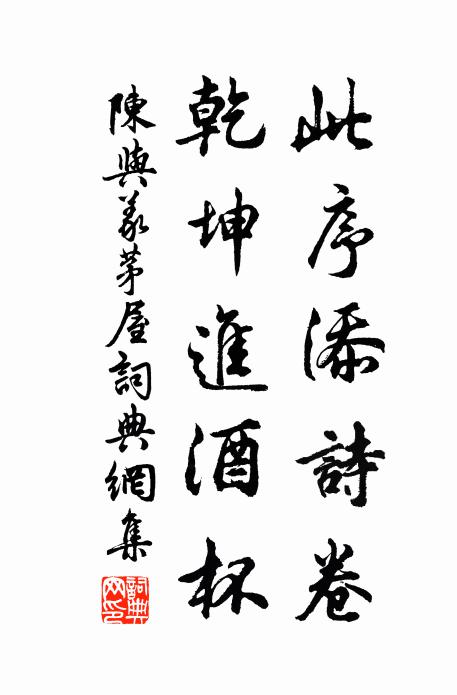 此序添詩卷
乾坤進酒杯
陳與義茅屋詞典網集
詞典網印